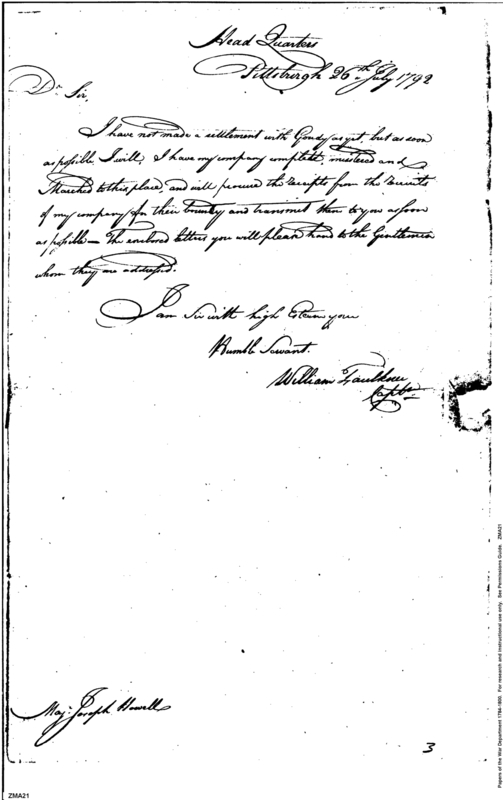 Head Quarters
Pittsburgh 26th July 1792
Dr Sir,
I have not made a settlement with Goudy as yet, but as soon
as possible I will, I have my company complete, mustered and
Marched to this place, and will procure the receipts from the recruits
of my company for their bounty and transmit them to you as soon
as possible — The enclosed letters you will please hand to the Gentlemen
whom they are addressed.
I am Sir with high Esteem your
Humble Servant.
William Faulkner
Captn
Maj. Joseph Howell
3
ZMA21
Papers of the War Department 1784-1800. For research and instructional use only. See Permissions Guide. ZMA21